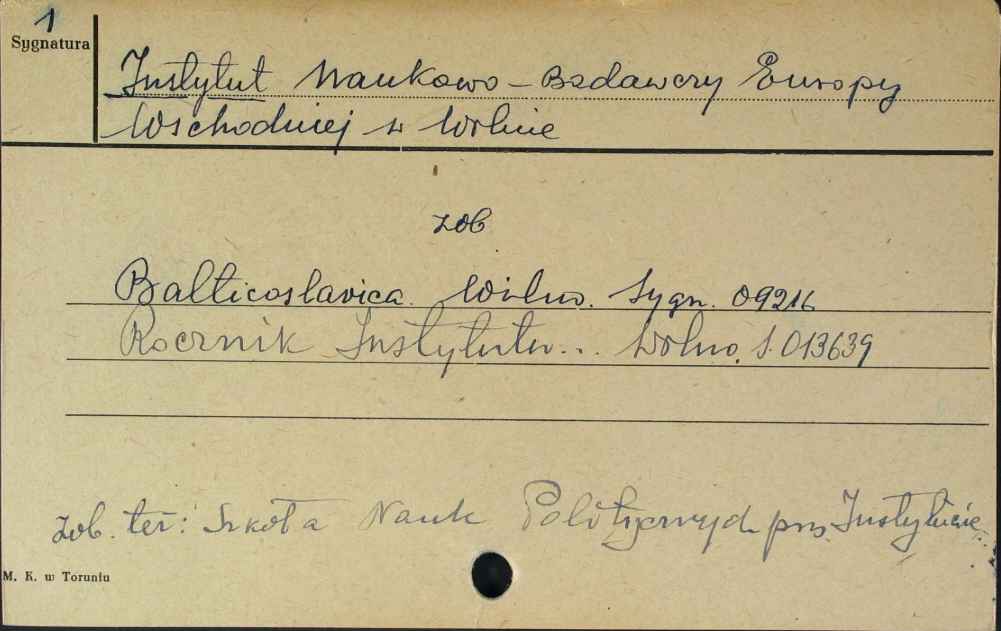 1
Sygnatura
Instytut Naukowo-Badawczy Europy
Wschodniej w Wilnie
zob
Balticoslavica. Wilno. Sygn. 09216
Rocznik Instytutu... Wilno. S. 013639
zob. też: Szkoła Nauk Politycznych prz. Instytucie...
M. K. w Toruniu